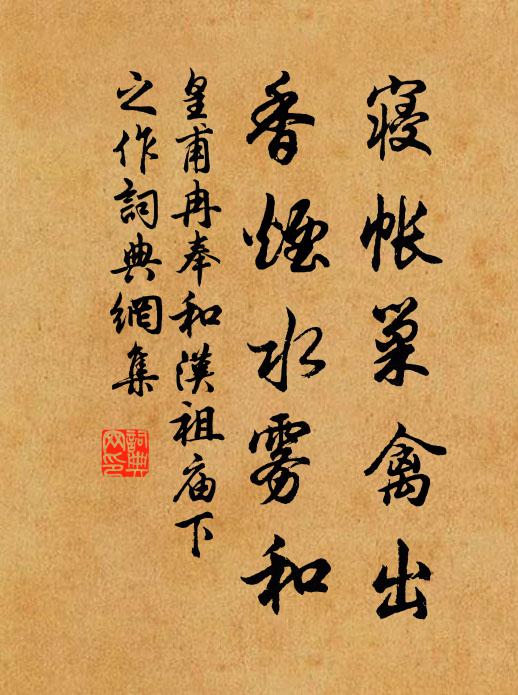 寢帳巢禽出
香煙水雾和
皇甫冉奉和漢祖庙下
之作詞典網集
詞典網印